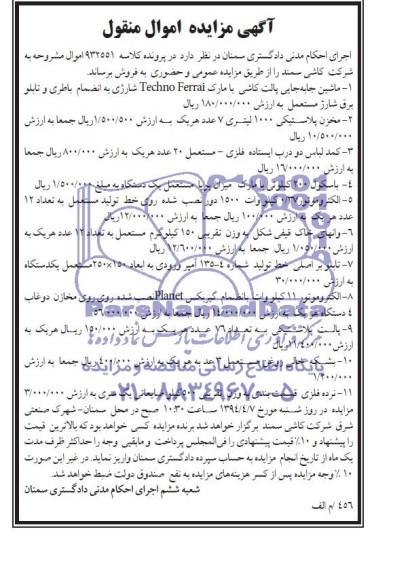 آگهی مزایده اموال منقول
اجرای احکام مدنی دادگستری سمنان در نظر دارد در پرونده کلاسه ۹۳۲۵۵۱ اموال مشروحه به
شرکت کاشی سمند را از طریق مزایده عمومی و حضوری به فروش برساند.
۱- ماشین جابه‌جایی پالت کاشی با مارک Techno Ferrai شارژی به انضمام باطری و تابلو
برق شارژ مستعمل به ارزش ۱۸۰/۰۰۰/۰۰۰ ریال
۲- مخزن پلاستیکی ۱۰۰۰ لیتری ۷ عدد هر یک به ارزش ۱/۵۰۰/۵۰۰ ریال جمعا به ارزش
۱۰/۵۰۰/۰۰۰ ریال
۳- کمد لباس دو درب ایستاده فلزی - مستعمل ۲۰ عدد هر یک به ارزش ۸۰۰/۰۰۰ ریال جمعا
به ارزش ۱۶/۰۰۰/۰۰۰ ریال
۴- باسکول ۲۰۰ کیلوئی با مارک میزان برپا مستعمل یک دستگاه به مبلغ ۱/۵۰۰/۰۰۰ ریال
۵- الکتروموتور ۰/۳۷ کیلو وات ۱۵۰۰ دور نصب شده روی خط تولید مستعمل به تعداد ۱۲
عدد هر یک به ارزش ۱۰۰/۰۰۰ ریال جمعا به ارزش ۱۲/۰۰۰/۰۰۰ ریال
۶- وانهای خاک قیفی شکل به وزن تقریبی ۱۵۰ کیلوگرم مستعمل به تعداد ۱۲ عدد هر یک به
ارزش ۱/۰۵۰/۰۰۰ ریال جمعا به ارزش ۱۲/۶۰۰/۰۰۰ ریال
۷- تابلو بر اصلی خط تولید شماره ۴-۱۳۵ آمپر ورودی به ابعاد ۱۵۰×۲۵۰ مستعمل یکدستگاه
به ارزش ۳۰/۰۰۰/۰۰۰
۸- الکتروموتور ۱۱ کیلو وات بانضمام گیربکس Planet نصب شده روی روی مخازن دوغاب
۴ دستگاه هر یک به ارزش ۱۴/۰۰۰/۰۰۰ ریال جمعا به ارزش ۵۶/۰۰۰/۰۰۰
۹- پالت پلاستیکی به تعداد ۷۶ عدد هر یک به ارزش ۱۵۰/۰۰۰ ریال هر یک به
ارزش ریال
۱۰- بشکه خالی روغن مستعمل ۳ عدد هر یک به ارزش ۴۰۰/۰۰۰ ریال جمعا به ارزش
۱/۲۰۰/۰۰۰
۱۱- نرده فلزی قسمت بندی به وزن تقریبی ۵۰۰ کیلو ضایعاتی یک سری به ارزش ۳/۰۰۰/۰۰۰
مزایده در روز شنبه مورخ ۱۳۹۴/۴/۷ ساعت ۱۰:۳۰ صبح در محل سمنان- شهرک صنعتی
شرق شرکت کاشی سمند برگزار خواهد شد برنده مزایده کسی خواهد بود که بالاترین قیمت
را پیشنهاد و ۱۰٪ قیمت پیشنهادی را فی‌المجلس پرداخت و مابقی وجه را حداکثر ظرف مدت
یک ماه از تاریخ انجام مزایده به حساب سپرده دادگستری سمنان واریز نماید. در غیر این صورت
۱۰٪ وجه مزایده پس از کسر هزینه‌های مزایده به نفع صندوق دولت ضبط خواهد شد.
شعبه ششم اجرای احکام مدنی دادگستری سمنان
۴۵۶ /م الف
پایگاه اطلاع رسانی مناقصه و مزایده
۰۲۱-۸۸۳۴۹۶۷۰-۵